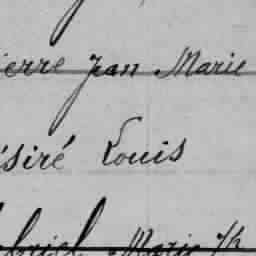 ierre Jean Marie
ésiré Louis
briel Marie Th